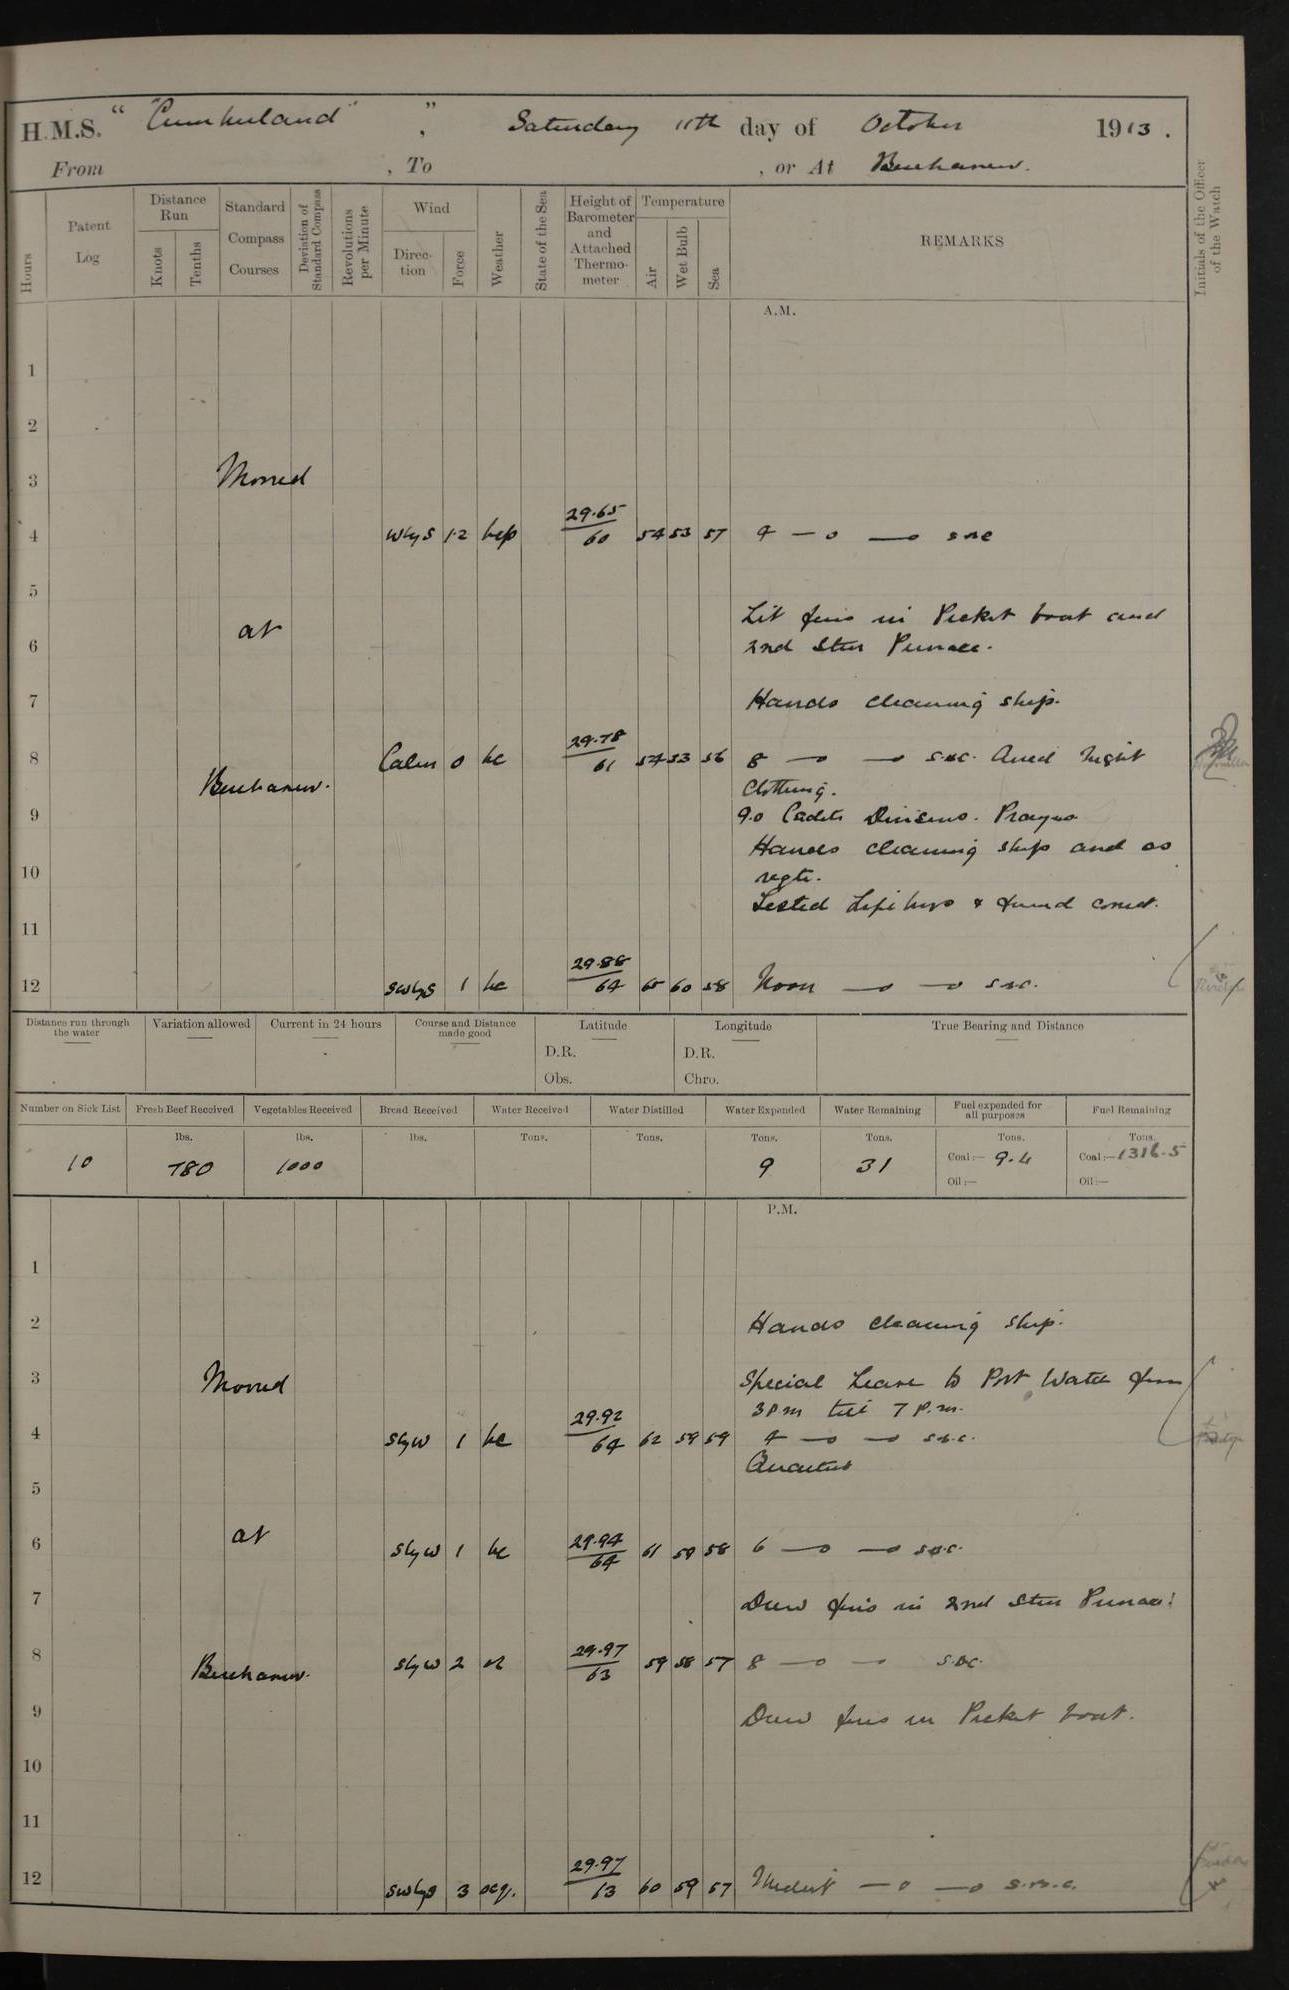 H.M.S. "Cumberland", Saturday 11th day of October 1913.
From , To , or At Buehaven.
Hours
Patent Log
Distance Run
Knots
Tenths
Standard Compass Courses
Deviation of Standard Compass
Revolutions per Minute
Wind
Direction
Force
Weather
State of the Sea
Height of Barometer and Attached Thermometer
Temperature
Air
Wet Bulb
Sea
REMARKS
Initials of the Officer of the Watch
A.M.
1
2
3 Moored
4 WbyS 1.2 bcp 29.65/60 54 53 57 4 — o —o s.n.c
5
Lit fires in Picket boat and
6 at 2nd Stm Pinnace.
7 Hands cleaning ship.
8 Calm 0 bc 29.78/61 54 53 56 8 —o —o s.n.c. Aired Night
Clothing.
Buehaven.
9 9.0 Cadets Divisions. Prayers
Hands cleaning ship and as
10 reqte.
Tested Lifebuoys & found correct.
11
12 SWbyS 1 bc 29.88/64 65 60 58 Noon —o —o s.n.c.
Distance run through the water
Variation allowed
Current in 24 hours
Course and Distance made good
Latitude
D.R.
Obs.
Longitude
D.R.
Chro.
True Bearing and Distance
Number on Sick List
Fresh Beef Received
Vegetables Received
Bread Received
Water Received
Water Distilled
Water Expended
Water Remaining
Fuel expended for all purposes
Fuel Remaining
lbs. lbs. lbs. Tons. Tons. Tons. Tons. Tons. Tons.
10 780 1000 9 31 Coal:— 9.4 Coal:— 1316.5
Oil:— Oil:—
P.M.
1
2 Hands cleaning ship.
3 Moored Special Leave to Port Watch from
3 pm till 7 p.m.
4 SbyW 1 bc 29.92/64 62 59 59 4 —o —o s.n.c.
Quarters
5
6 at SbyW 1 bc 29.94/64 61 59 58 6 —o —o s.n.c.
7 Drew fires in 2nd Stm Pinnace.
8 SbyW 2 29.97/63 59 58 57 8 —o — s.n.c.
Buehaven.
9 Drew fires in Picket boat.
10
11
12 SWbyS 3 ocq. 29.97/63 60 59 57 Midnt —o —o s.n.c.